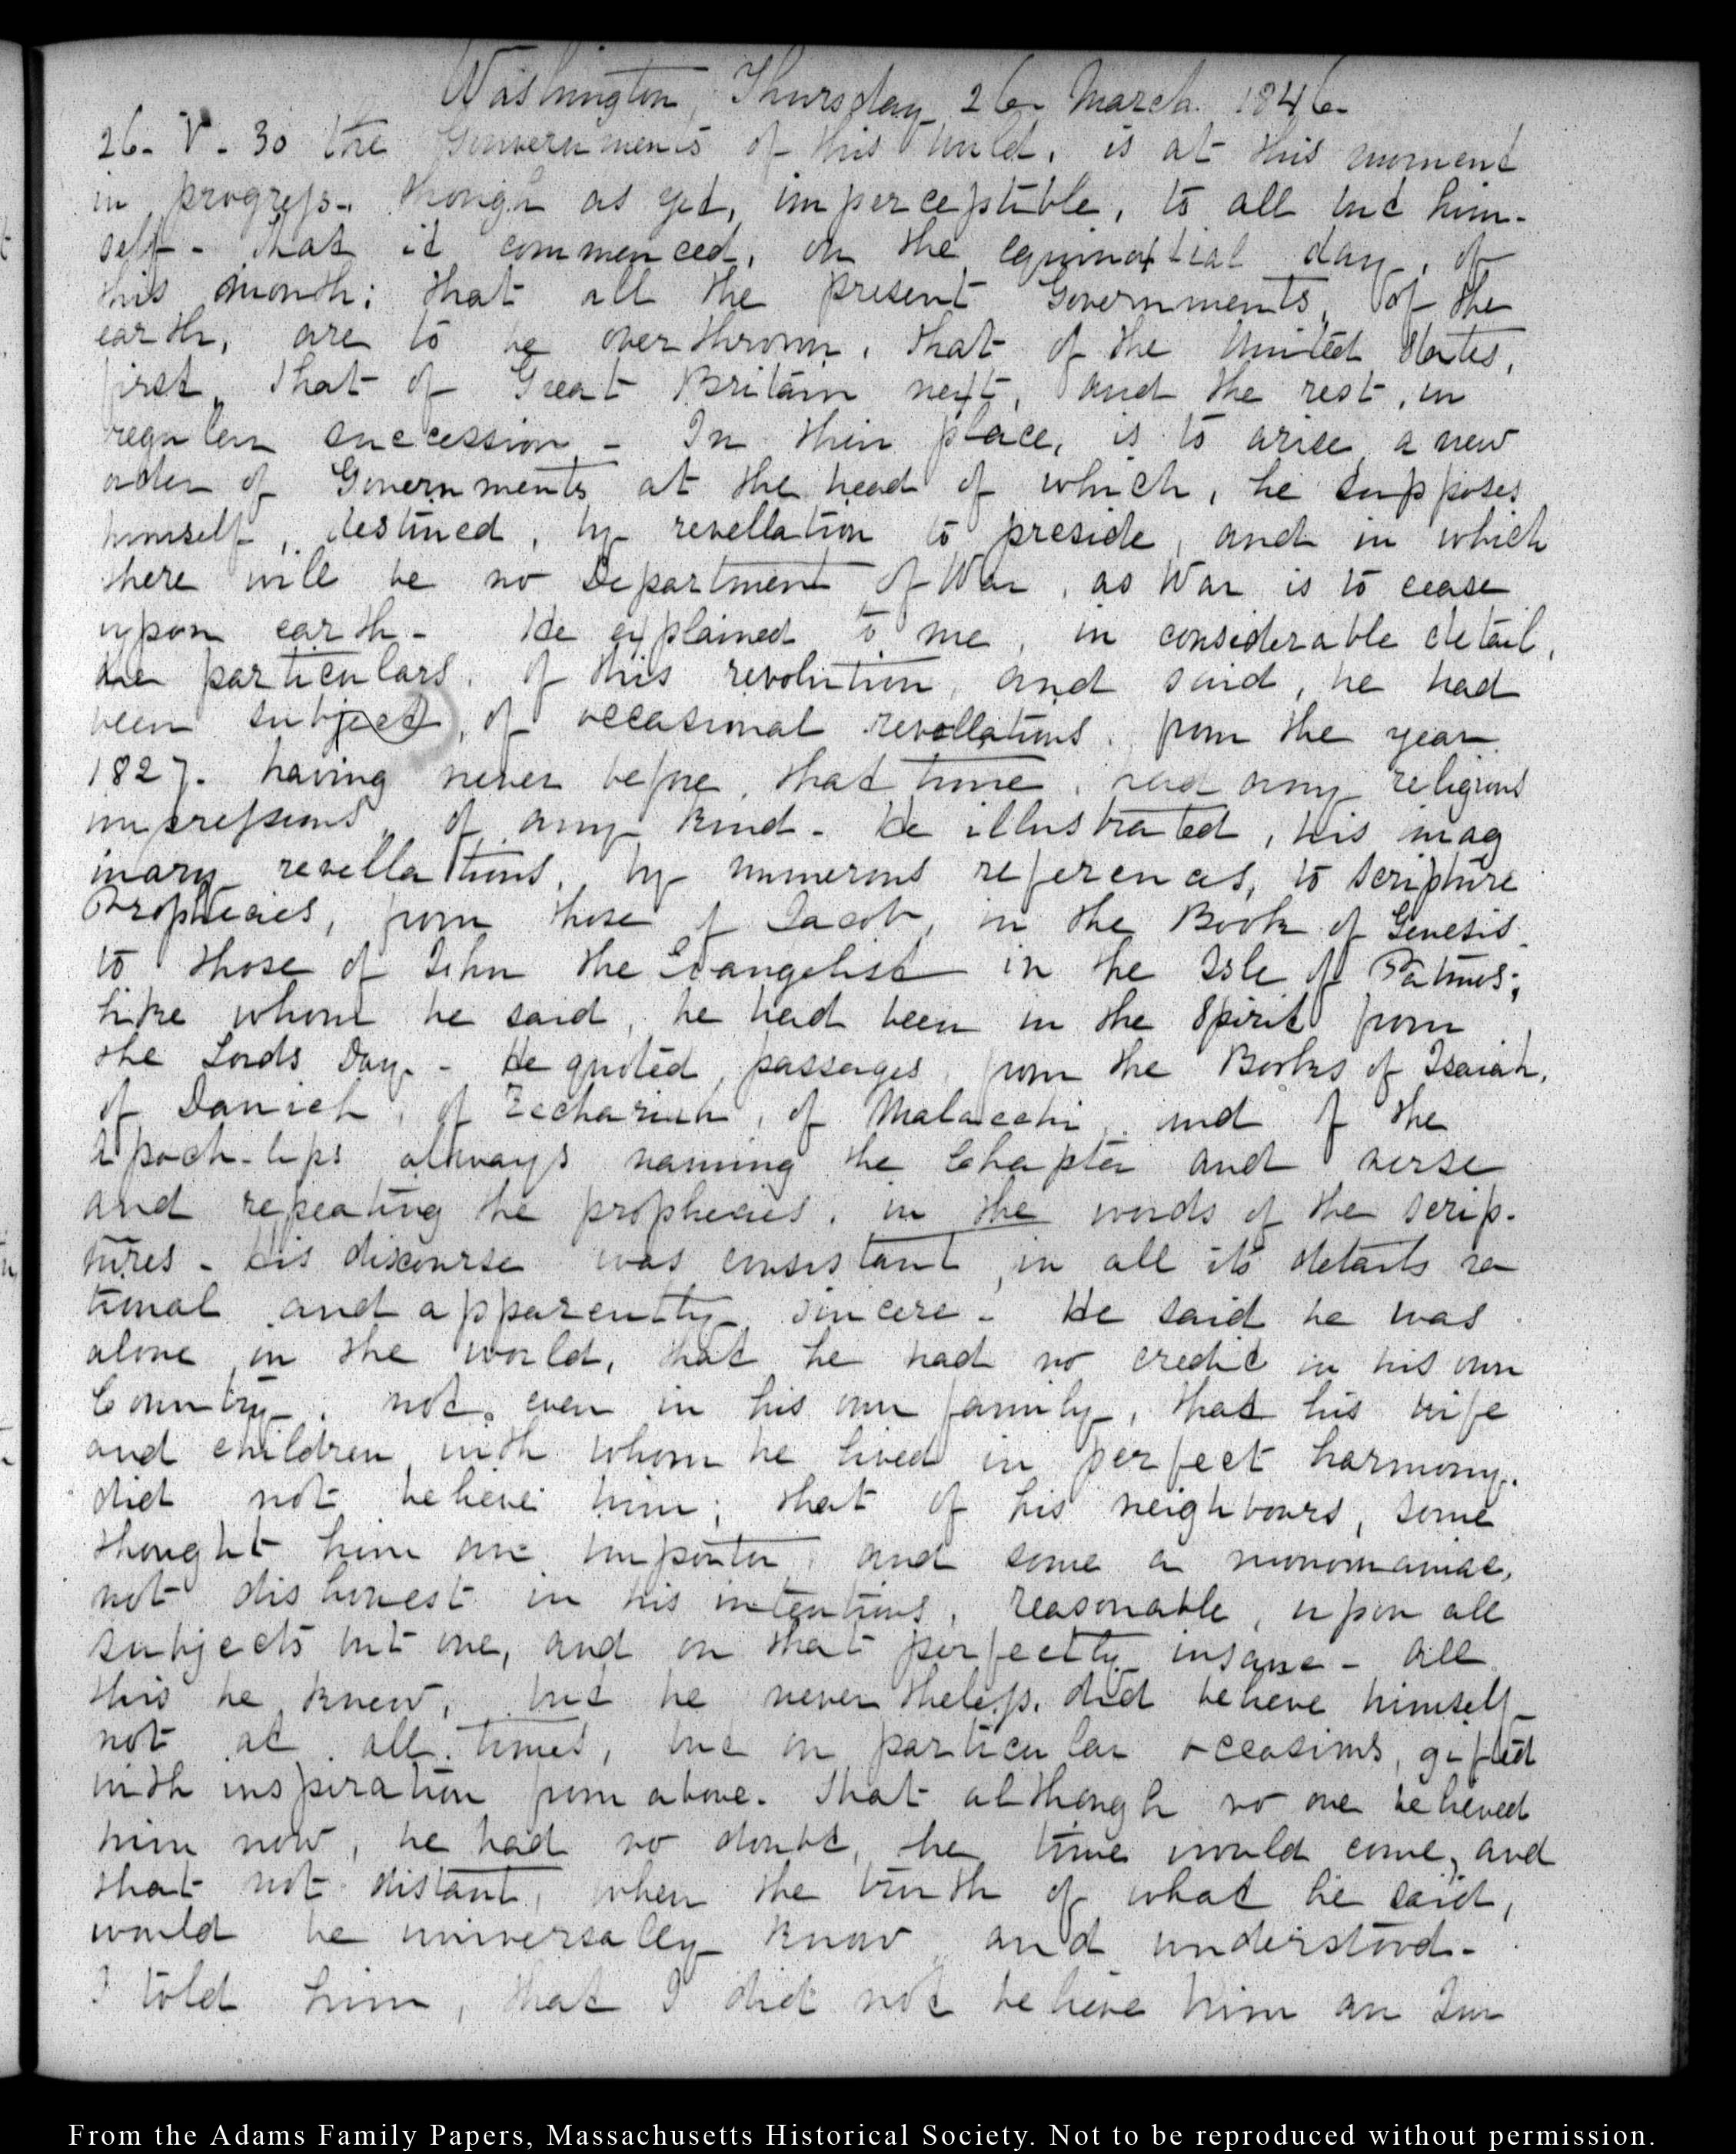 Washington, Thursday 26 March 1846
26. V. 30 the Governments of this World, is at this moment
in progress. though as yet, imperceptible, to all but him-
self - that it commenced, on the equinoxtial day, of
this month: that all the present Governments, of the
earth, are to be overthrown, that of the United States,
first, that of Great Britain next, and the rest, in
regular succession - In their place, is to arise a new
order of Governments at the head of which, he supposes
himself, destined, by revellation to preside, and in which
there will be no Department of War, as War is to cease
upon earth - He explained to me, in considerable detail,
the particulars, of this revolution, and said, he had
been subject, of occasional revellations, from the year
1827. having never before, that time, had any religious
impressions, of any kind - He illustrated, his imag
inary revellations, by numerous references, to scripture
Prophecies, from those of Jacob, in the Book of Genesis
to those of John the Evangelist in the Isle of Patmos;
like whom he said, he had been in the Spirit from
the Lords Day - He quoted, passages, from the Books of Isaiah,
of Daniel, of Zechariah, of Malacchi, and of the
Apocalyps always naming the Chapter and verse
and repeating the prophecies, in the words of the scrip-
tures - His discourse was consistant, in all its details ra
tional and apparently sincere - He said he was
alone in the world, that he had no credit in his own
Country, not, even in his own family, that his wife
and children with whom he lived in perfect harmony,
did not believe him; that of his neighbours, some
thought him an impostor, and some a monomaniac,
not dishonest in his intentions, reasonable, upon all
subjects but one, and on that perfectly insane - All
this he knew, but he nevertheless, did believe himself
not at all times, but on particular occasions, gifted
with inspiration from above. That although no one believed
him now, he had no doubt, the time would come, and
that not distant, when the truth of what he said,
would be universally know and understood -
I told him, that I did not believe him an Im
From the Adams Family Papers, Massachusetts Historical Society. Not to be reproduced without permission.